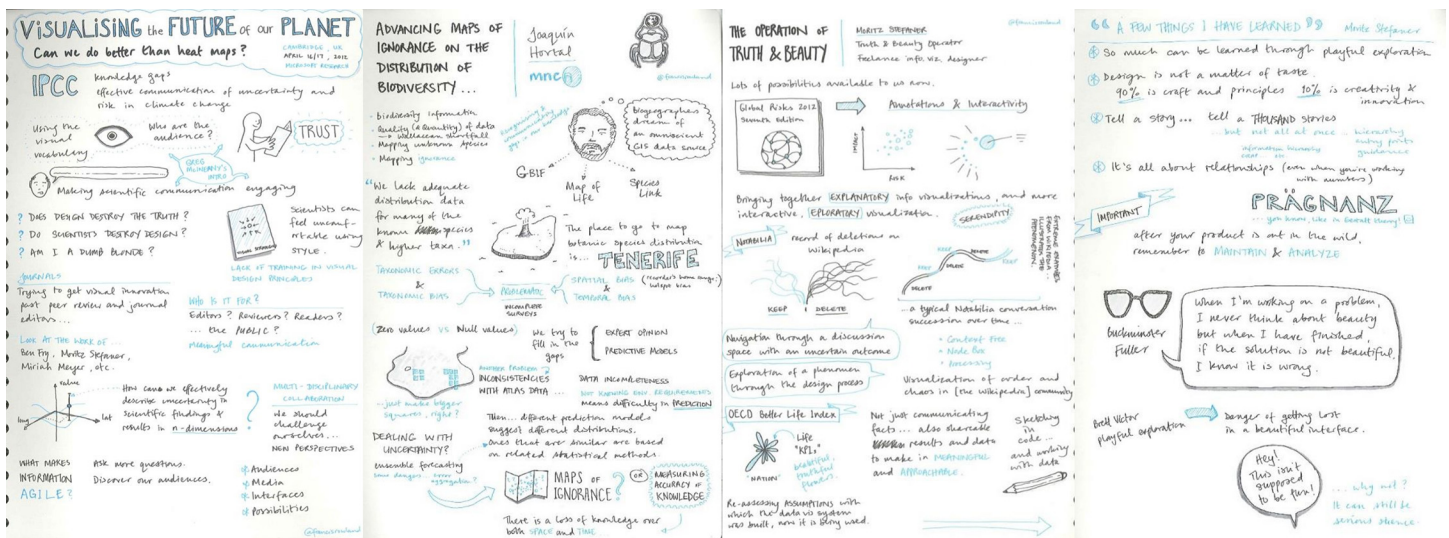 VISUALISING the FUTURE of our PLANET
Can we do better than heat maps?
CAMBRIDGE, UK
APRIL 16/17, 2012
MICROSOFT RESEARCH
IPCC
knowledge gaps
effective communication of uncertainty and
risk in climate change
Using the
visual
vocabulary
Who are the
audience?
TRUST
GREG
McINERNY'S
INTRO
Making scientific communication engaging
? DOES DESIGN DESTROY THE TRUTH?
? DO SCIENTISTS DESTROY DESIGN?
? AM I A DUMB BLONDE?
Scientists can
feel uncomf-
ortable using
STYLE.
LACK OF TRAINING IN VISUAL
DESIGN PRINCIPLES
JOURNALS
Trying to get visual innovation
past peer review and journal
editors...
WHO IS IT FOR?
Editors? Reviewers? Readers?
... the PUBLIC?
Meaningful communication
LOOK AT THE WORK OF...
Ben Fry, Moritz Stefaner,
Miriah Meyer, etc.
value
long
lat
How can we effectively
describe uncertainty in
scientific findings &
results in n-dimensions
?
MULTI-DISCIPLINARY
COLLABORATION
We should
challenge
ourselves...
NEW PERSPECTIVES
WHAT MAKES
INFORMATION
AGILE?
Ask more questions.
Discover our audiences.
Audiences
Media
Interfaces
Possibilities
@francisrowland
ADVANCING MAPS OF
IGNORANCE ON THE
DISTRIBUTION OF
BIODIVERSITY...
Joaquín
Hortal
mnc
@francisrowland
biodiversity information
Quality (& quantity) of data
→ Wallacean shortfall
Mapping unknown species
Mapping ignorance
Recognising &
communicating
gaps in our knowledge
biogeographers
dream of
an omniscient
GIS data source
GBIF
Map of
Life
Species
Link
"We lack adequate
distribution data
for many of the
known species
& higher taxa."
The place to go to map
botanic species distribution
is... TENERIFE
TAXONOMIC ERRORS
&
TAXONOMIC BIAS
PROBLEMATIC
INCOMPLETE
SURVEYS
SPATIAL BIAS
&
TEMPORAL BIAS
(Zero values vs Null values)
We try to
fill in the
gaps
EXPERT OPINION
PREDICTIVE MODELS
ANOTHER PROBLEM?
INCONSISTENCIES
WITH ATLAS DATA...
...just make bigger
squares, right?
DATA INCOMPLETENESS
NOT KNOWING ENV. REQUIREMENTS
means difficulty in PREDICTION
Then... different prediction models
suggest different distributions.
Ones that are similar are based
on related statistical methods.
DEALING WITH
UNCERTAINTY?
ensemble forecasting
MAPS OF
IGNORANCE?
OR
MEASURING
ACCURACY OF
KNOWLEDGE
There is a loss of knowledge over
both SPACE and TIME
THE OPERATION OF
TRUTH & BEAUTY
MORITZ STEFANER
Truth & Beauty Operator
Freelance info. viz. designer
@francisrowland
Lots of possibilities available to us now.
Global Risks 2012
Seventh Edition
Annotations & Interactivity
IMPACT
RISK
Bringing together EXPLANATORY info visualizations, and more
interactive, EPLORATORY visualization.
SERENDIPITY
NOTABILIA
record of deletions on
Wikipedia
KEEP
DELETE
KEEP
DELETE
DELETE
DELETE
...a typical Notabilia conversation
succession over time...
Navigation through a discussion
space with an uncertain outcome
Exploration of a phenomenon
through the design process
• Context Free
• Node Box
• Processing
Visualization of order and
chaos in [the Wikipedia] community
OECD Better Life Index
Life
"KPI"
beautiful,
truthful
flowers.
"NATION"
Not just communicating
facts... also shareable
results and data
to make in MEANINGFUL
and APPROACHABLE.
Sketching
in
code...
and working
with data
Re-assessing ASSUMPTIONS with
which the data vis system
was built, now it is being used.
"A FEW THINGS I HAVE LEARNED" Moritz Stefaner
So much can be learned through playful exploration
Design is not a matter of taste.
90% is craft and principles 10% is creativity &
innovation
Tell a story... tell a THOUSAND stories
...but not all at once
hierarchy
entry points
guidance
It's all about relationships (even when you're working
with numbers)
PRÄGNANZ
...you know, like in Gestalt theory!
IMPORTANT
after your product is out in the wild,
remember to MAINTAIN & ANALYZE
Buckminster
Fuller
When I'm working on a problem,
I never think about beauty
but when I have finished,
if the solution is not beautiful,
I know it is wrong.
Bret Victor
playful exploration
Danger of getting lost
in a beautiful interface.
Hey!
This isn't
supposed
to be fun!
... why not?
It can still be
serious science.